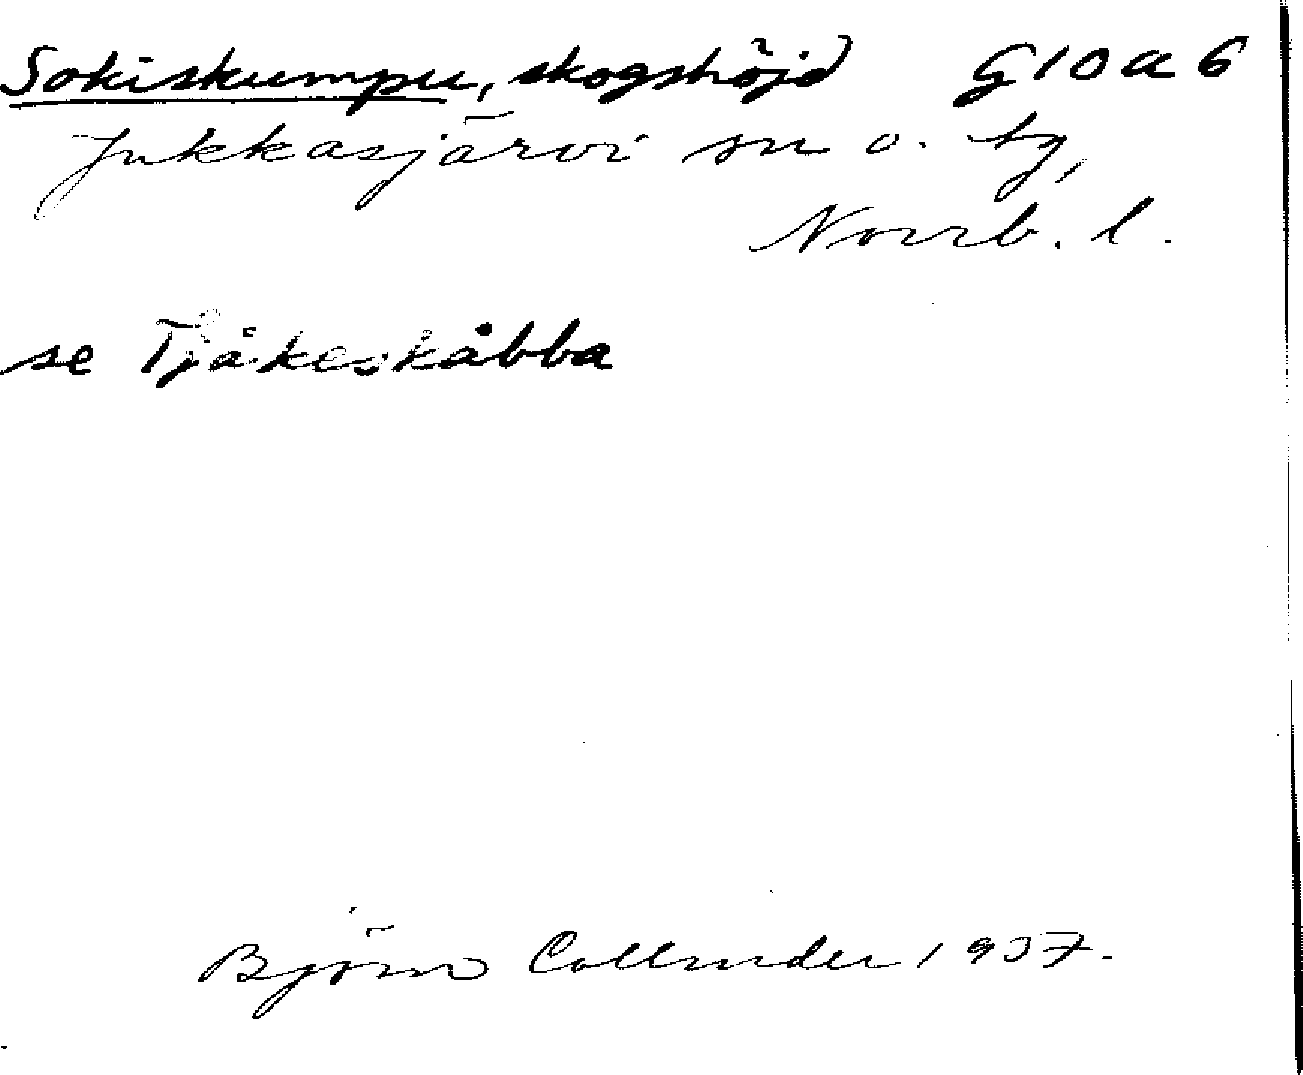 Sokiskumpu, skogshöjd G10a6
Jukkasjärvi sn o. tg,
Norrb. l.
se Tjåkeskåbba
Björn Collinder 1937.